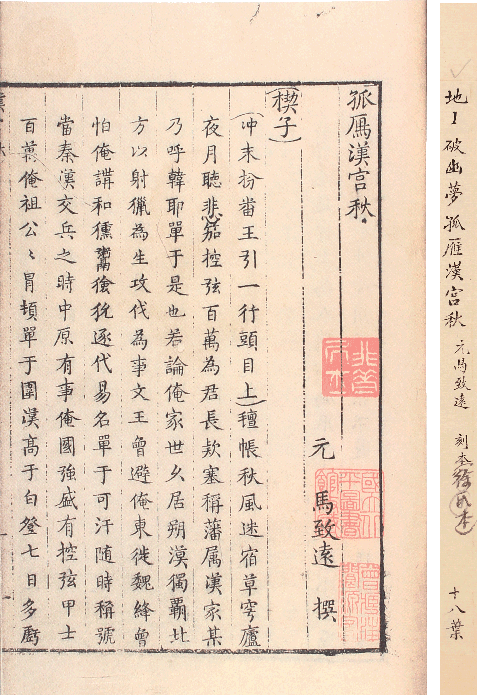 地1 破幽夢孤雁漢宮秋 元馬致遠 十八葉
孤鴈漢宮秋
元 馬致遠 撰
(楔子)
(冲末扮畨王引一行頭目上)氊帳秋風迷宿草穹廬
夜月聽悲笳控弦百萬為君長欵塞稱藩属漢家某
乃呼韓耶單于是也若論俺家世乆居朔漠獨覇北
方以射獵為生攻伐為事文王曾避俺東徙魏絳曾
怕俺講和獯鬻獫狁逐代易名單于可汗随時稱號
當秦漢交兵之時中原有事俺國強盛有控弦甲士
百萬俺祖公〻冐頓單于圍漢髙于白登七日多虧